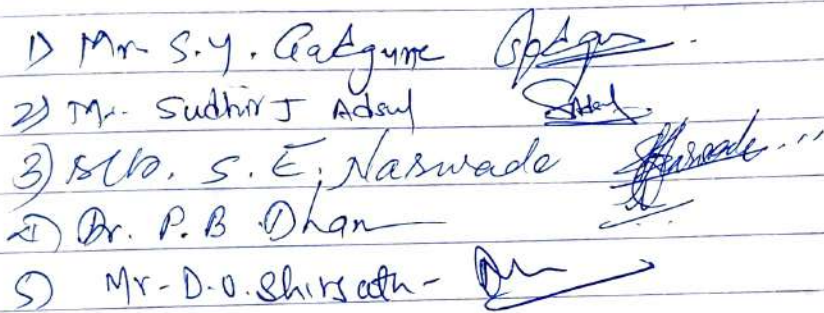 1) Mr. S.Y. Gadgune
2) Mr. Sudhir J Adsul
3) S. E. Naswade
4) Dr. P. B. Dhan
5) Mr. D.O. Shirsath